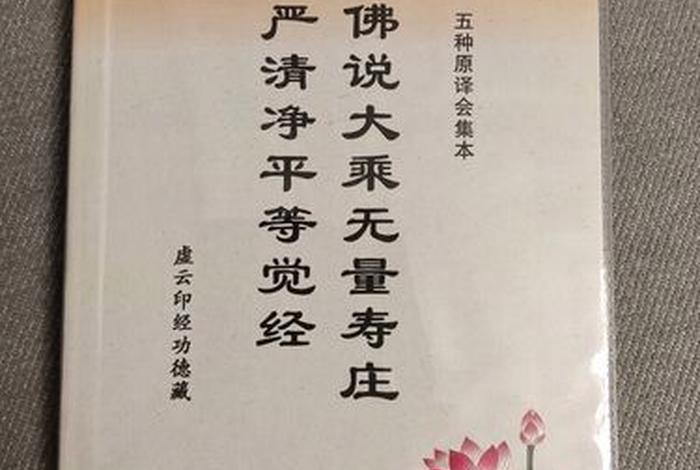 五种原译会集本
佛说大乘无量寿庄
严清净平等觉经
虚云印经功德藏